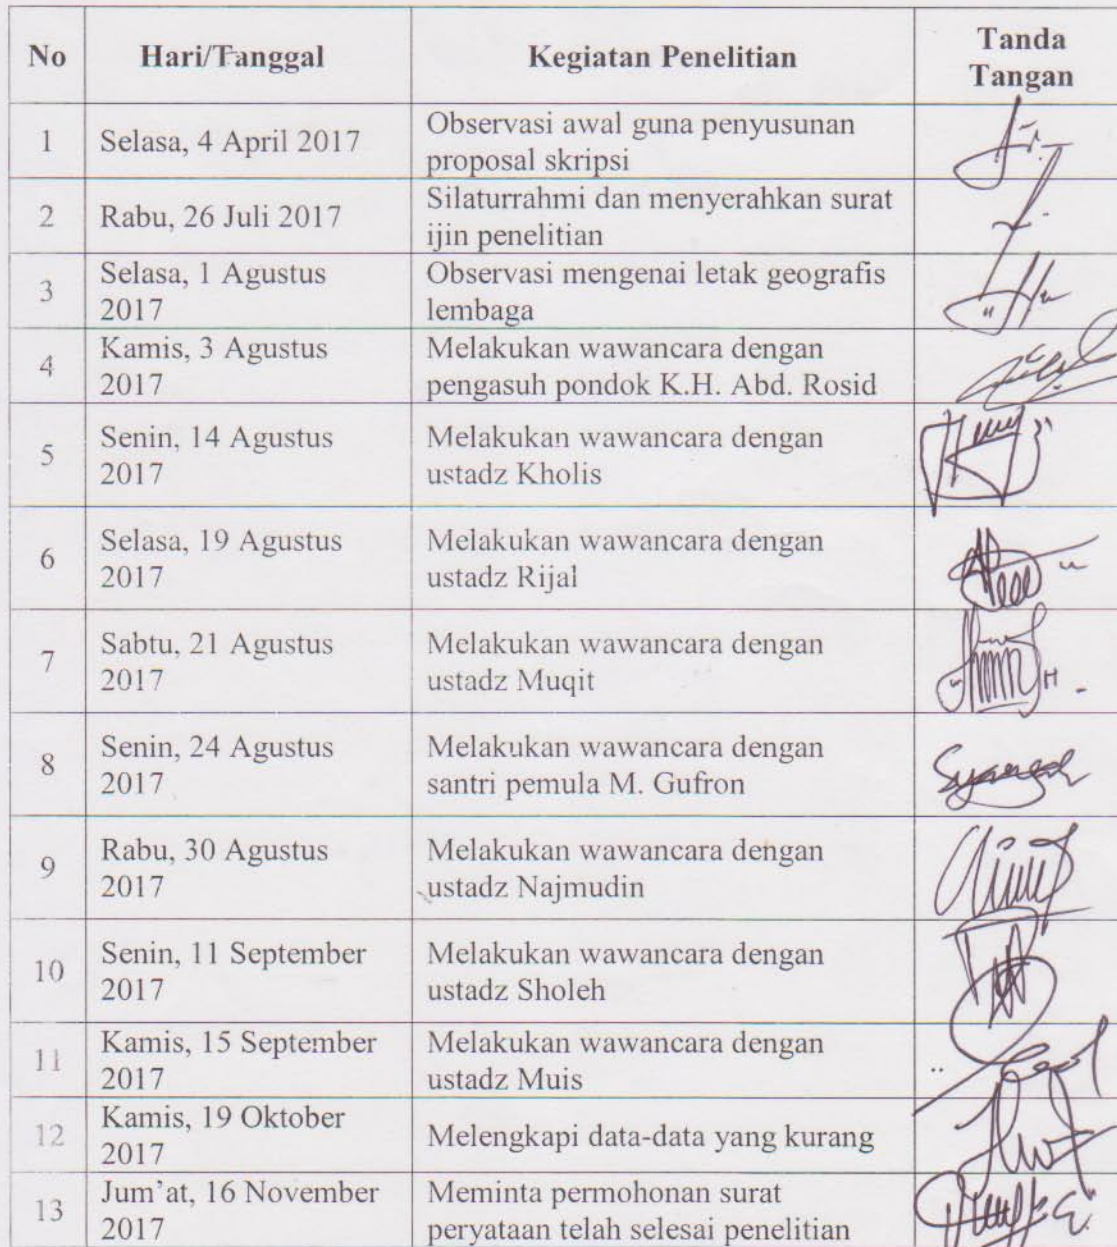 No
Hari/Tanggal
Kegiatan Penelitian
Tanda
Tangan
1
Selasa, 4 April 2017
Observasi awal guna penyusunan
proposal skripsi
2
Rabu, 26 Juli 2017
Silaturrahmi dan menyerahkan surat
ijin penelitian
3
Selasa, 1 Agustus
2017
Observasi mengenai letak geografis
lembaga
4
Kamis, 3 Agustus
2017
Melakukan wawancara dengan
pengasuh pondok K.H. Abd. Rosid
5
Senin, 14 Agustus
2017
Melakukan wawancara dengan
ustadz Kholis
6
Selasa, 19 Agustus
2017
Melakukan wawancara dengan
ustadz Rijal
7
Sabtu, 21 Agustus
2017
Melakukan wawancara dengan
ustadz Muqit
8
Senin, 24 Agustus
2017
Melakukan wawancara dengan
santri pemula M. Gufron
9
Rabu, 30 Agustus
2017
Melakukan wawancara dengan
ustadz Najmudin
10
Senin, 11 September
2017
Melakukan wawancara dengan
ustadz Sholeh
11
Kamis, 15 September
2017
Melakukan wawancara dengan
ustadz Muis
12
Kamis, 19 Oktober
2017
Melengkapi data-data yang kurang
13
Jum'at, 16 November
2017
Meminta permohonan surat
peryataan telah selesai penelitian